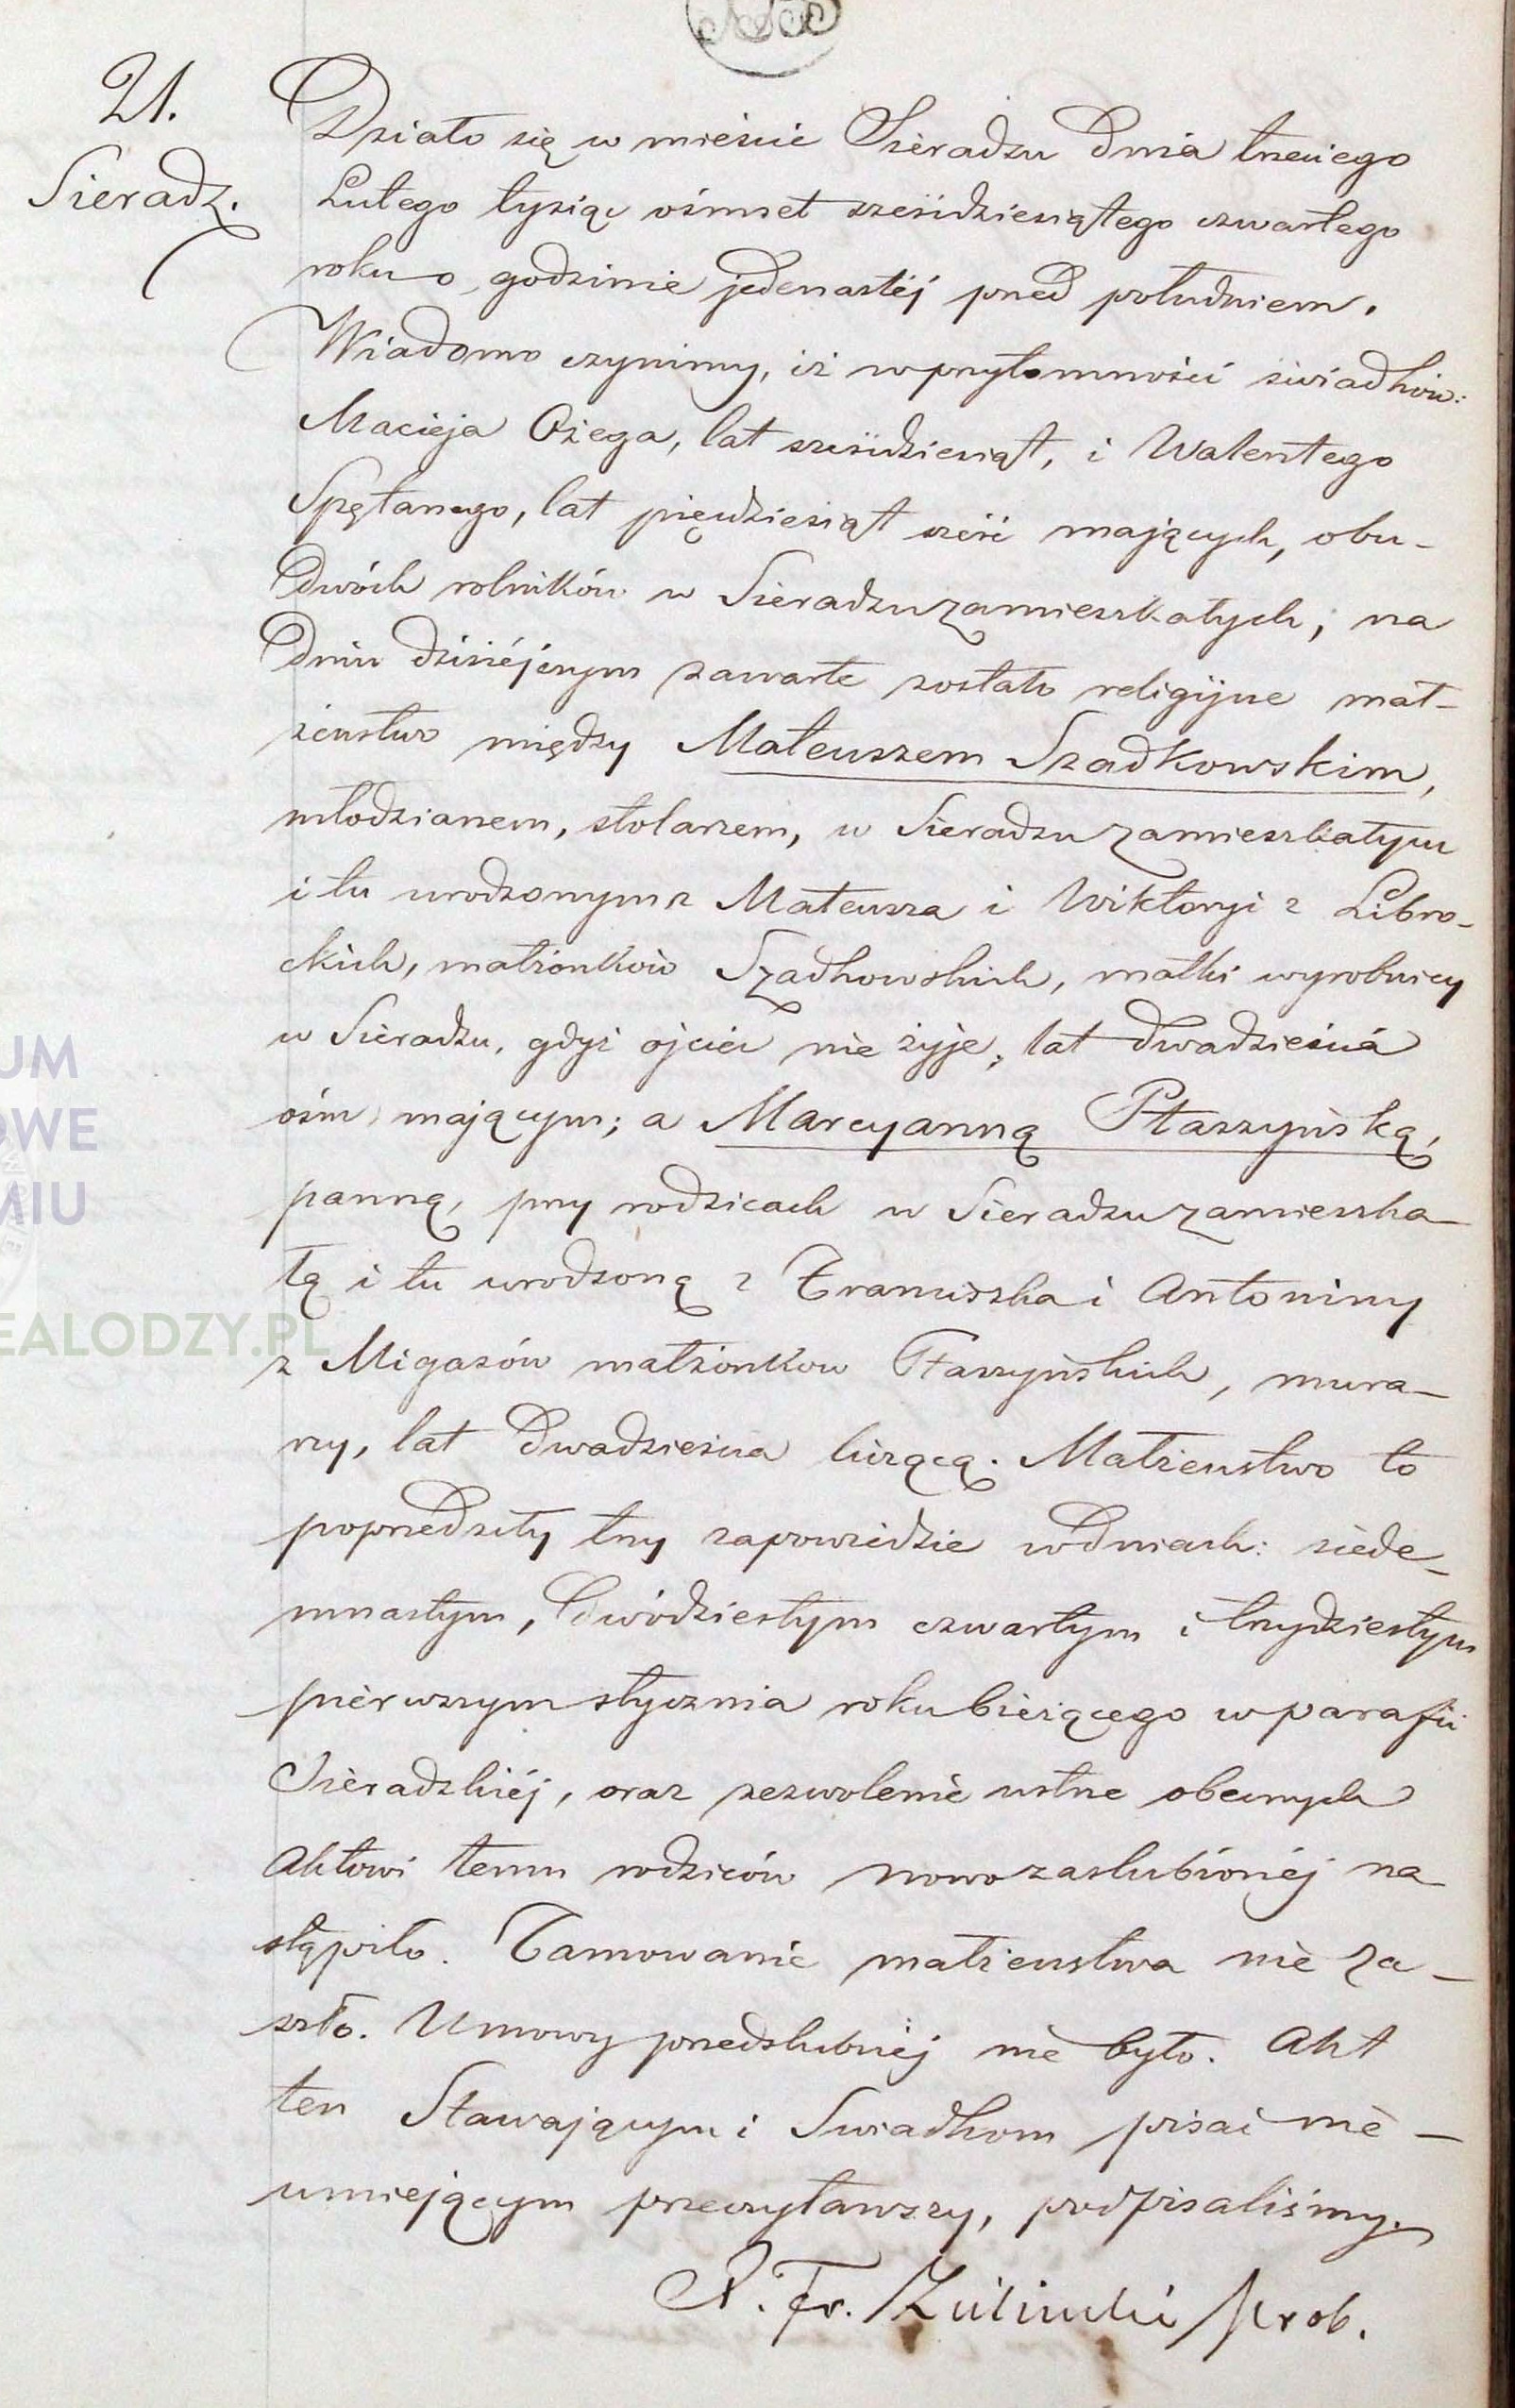 21.
Sieradz.
Działo się w mieście Sieradzu dnia trzeciego
Lutego tysiąc ośmset sześćdziesiątego czwartego
roku o godzinie jedenastéj przed południem.
Wiadomo czynimy, iż w przytomności świadków:
Macieja Ożega, lat sześćdziesiąt, i Walentego
Spętanego, lat pięćdziesiąt sześć mających, obu-
dwóch rolników w Sieradzu zamieszkałych, na
dniu dzisiéjszym zawarte zostało religijne mał-
żeństwo między Mateuszem Szadkowskim,
młodzianem, stolarzem, w Sieradzu zamieszkałym
i tu urodzonym z Mateusza i Wiktoryi z Libro-
ckich, małżonków Szadkowskich, matki wyrobnicy
w Sieradzu, gdyż ojciec nie żyje, lat dwadzieścia
ośm mającym; a Marcyanną Ptaszyńską,
panną, przy rodzicach w Sieradzu zamieszka-
łą i tu urodzoną z Franciszka i Antoniny
z Migasów małżonków Ptaszyńskich, mura-
rzy, lat dwadzieścia liczącą. Małżeństwo to
poprzedziły trzy zapowiedzie w dniach: siede-
mnastym, dwódziestym czwartym i trzydziestym
pierwszym stycznia roku bieżącego w parafii
Sieradzkiéj, oraz zezwolenie ustne obecnych
Aktowi temu rodziców nowozaslubionéj na
stąpiło. Tamowanie małżeństwa nie za-
szło. Umowy przedslubnéj nie było. Akt
ten Stawającym i Swiadkom pisać nie-
umiejącym przeczytawszy, podpisaliśmy.
X. Fr. prob.
UM
OWE
MIU
EALODZY.PL